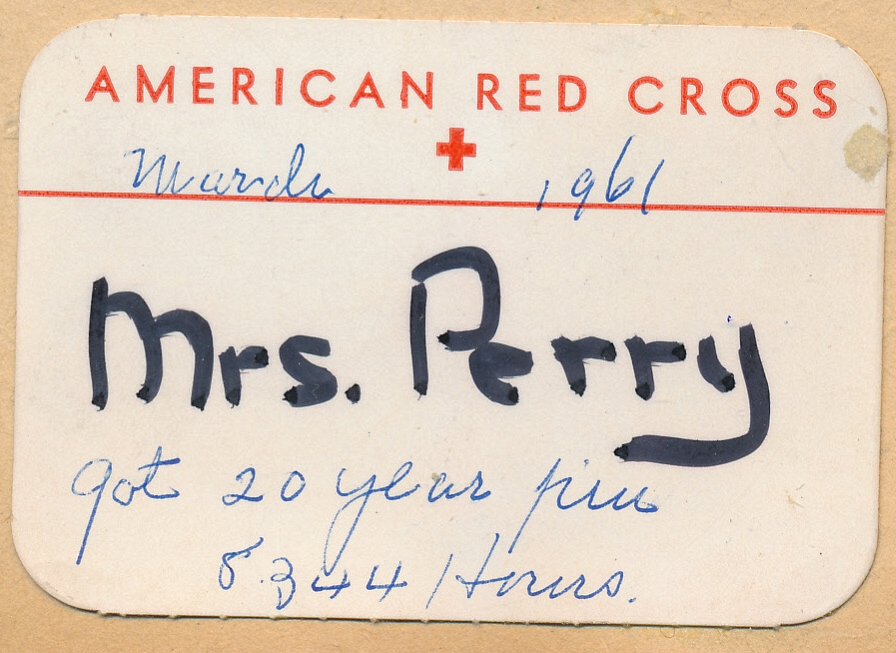 AMERICAN RED CROSS
March 1961
Mrs. Perry
got 20 year pin
8344 Hours.